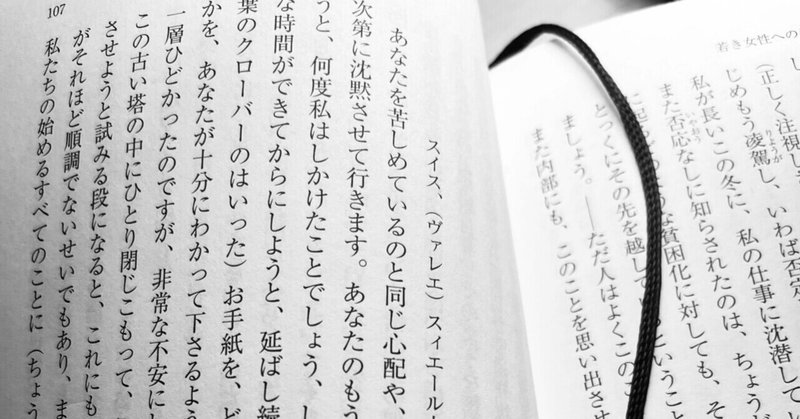 若き女性への
（正しく注視し
じめもう凌駕し、いわば否定
私が長いこの冬に、私の仕事に沈潜して
また否応なしに知らされたのは、ちょう
ような貧困化に対しても、そ
とっくにその先を越して いうこと
ましょう。――ただ人はよくこのこ
また内部にも、このことを思い出させ
スイス、（ヴァレエ）スィエール
あなたを苦しめているのと同じ心配や、
次第に沈黙させて行きます。あなたのもう
うと、何度私はしかけたことでしょう、し
な時間ができてからにしようと、延ばし続
葉のクローバーのはいった）お手紙を、ど
かを、あなたが十分にわかって下さるよう
一層ひどかったのですが、非常な不安にし
この古い塔の中にひとり閉じこもって、
させようと試みる段になると、これにも
がそれほど順調でないせいでもあり、ま
私たちの始めるすべてのことに（ちょう
107